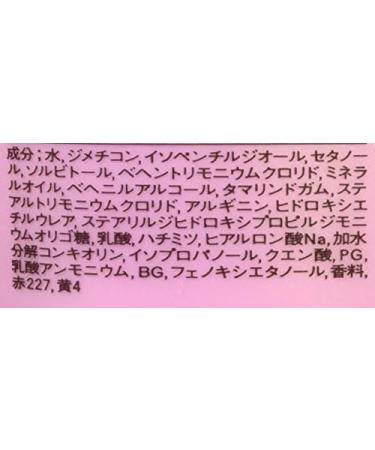 成分;水,ジメチコン,イソペンチルジオール,セタノー
ル,ソルビトール,ベヘントリモニウムクロリド,ミネラ
ルオイル,ベヘニルアルコール,タマリンドガム,ステ
アルトリモニウムクロリド,アルギニン,ヒドロキシエ
チルウレア,ステアリルジヒドロキシプロピルジモニ
ウムオリゴ糖,乳酸,ハチミツ,ヒアルロン酸Na,加水
分解コンキオリン,イソプロパノール,クエン酸,PG,
乳酸アンモニウム,BG,フェノキシエタノール,香料,
赤227,黄4